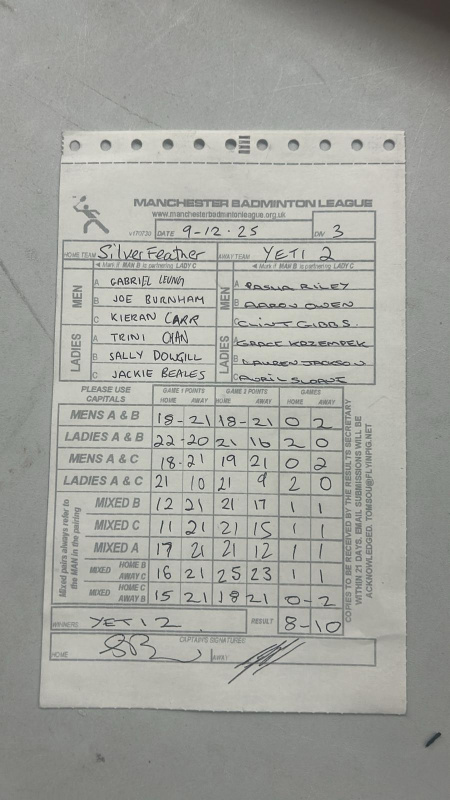 MANCHESTER BADMINTON LEAGUE
www.manchesterbadmintonleague.org.uk
v170723 DATE 9-12-25 DIV 3
HOME TEAM Silver Feather AWAY TEAM YETI 2
◄ Mark if MAN B is partnering LADY C ◄ Mark if MAN B is partnering LADY C
MEN A GABRIEL LEUNG MEN A PASHA RILEY
B JOE BURNHAM B AARON OWEN
C KIERAN CARR C CLINT GIBBS.
LADIES A TRINI CHAN LADIES A GRACE KOZEMPEK
B SALLY DOWGILL B LAUREN JACKSON
C JACKIE BEALES C
PLEASE USE CAPITALS GAME 1 POINTS GAME 2 POINTS GAMES
HOME AWAY HOME AWAY HOME AWAY
MENS A & B 18-21 18-21 0 2
LADIES A & B 22-20 21 16 2 0
MENS A & C 18-21 19 21 0 2
LADIES A & C 21 10 21 9 2 0
Mixed pairs always refer to the MAN in the pairing
MIXED B 12 21 21 17 1 1
MIXED C 11 21 21 15 1 1
MIXED A 17 21 21 12 1 1
MIXED HOME B AWAY C 16 21 25 23 1 1
MIXED HOME C AWAY B 15 21 18 21 0-2
WINNERS YETI 2 RESULT 8-10
CAPTAIN'S SIGNATURES
HOME AWAY
COPIES TO BE RECEIVED BY THE RESULTS SECRETARY
WITHIN 21 DAYS. EMAIL SUBMISSIONS WILL BE
ACKNOWLEDGED. TOMSOU@FLYINPIG.NET